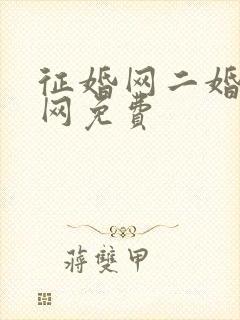 征婚网二婚
网免费
蒋雙甲